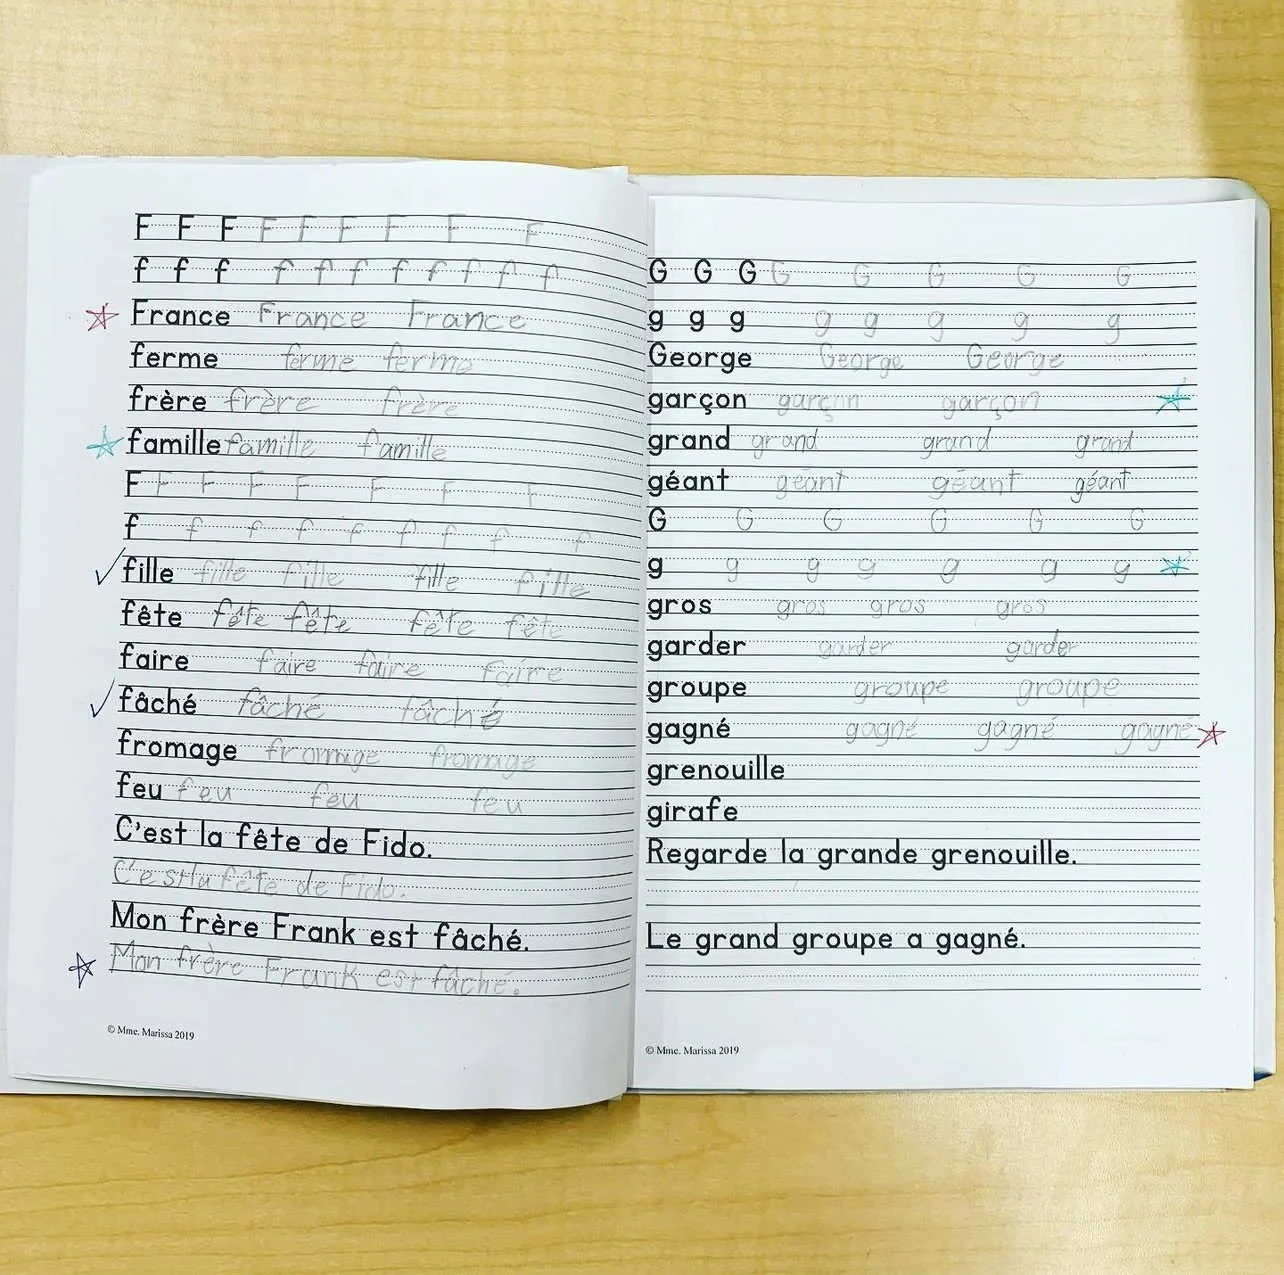 F F F F F F F F F
f f f f f f f f f f f
France France France
ferme ferme ferme
frère frère frère
famille famille famille
F F F F F F F F
f f f f f f f f f
fille fille fille fille fille
fête fête fête fête fête
faire faire faire faire
fâché fâché fâché
fromage fromage fromage
feu feu feu feu
C'est la fête de Fido.
C'est la fête de Fido.
Mon frère Frank est fâché.
Mon frère Frank est fâché.
© Mme. Marissa 2019
G G G G G G G G
g g g g g g g g
George George George
garçon garçon garçon
grand grand grand grand
géant géant géant géant
G G G G G G
g g g g g g g
gros gros gros gros
garder garder garder
groupe groupe groupe
gagné gagné gagné gagné
grenouille
girafe
Regarde la grande grenouille.
Le grand groupe a gagné.
© Mme. Marissa 2019